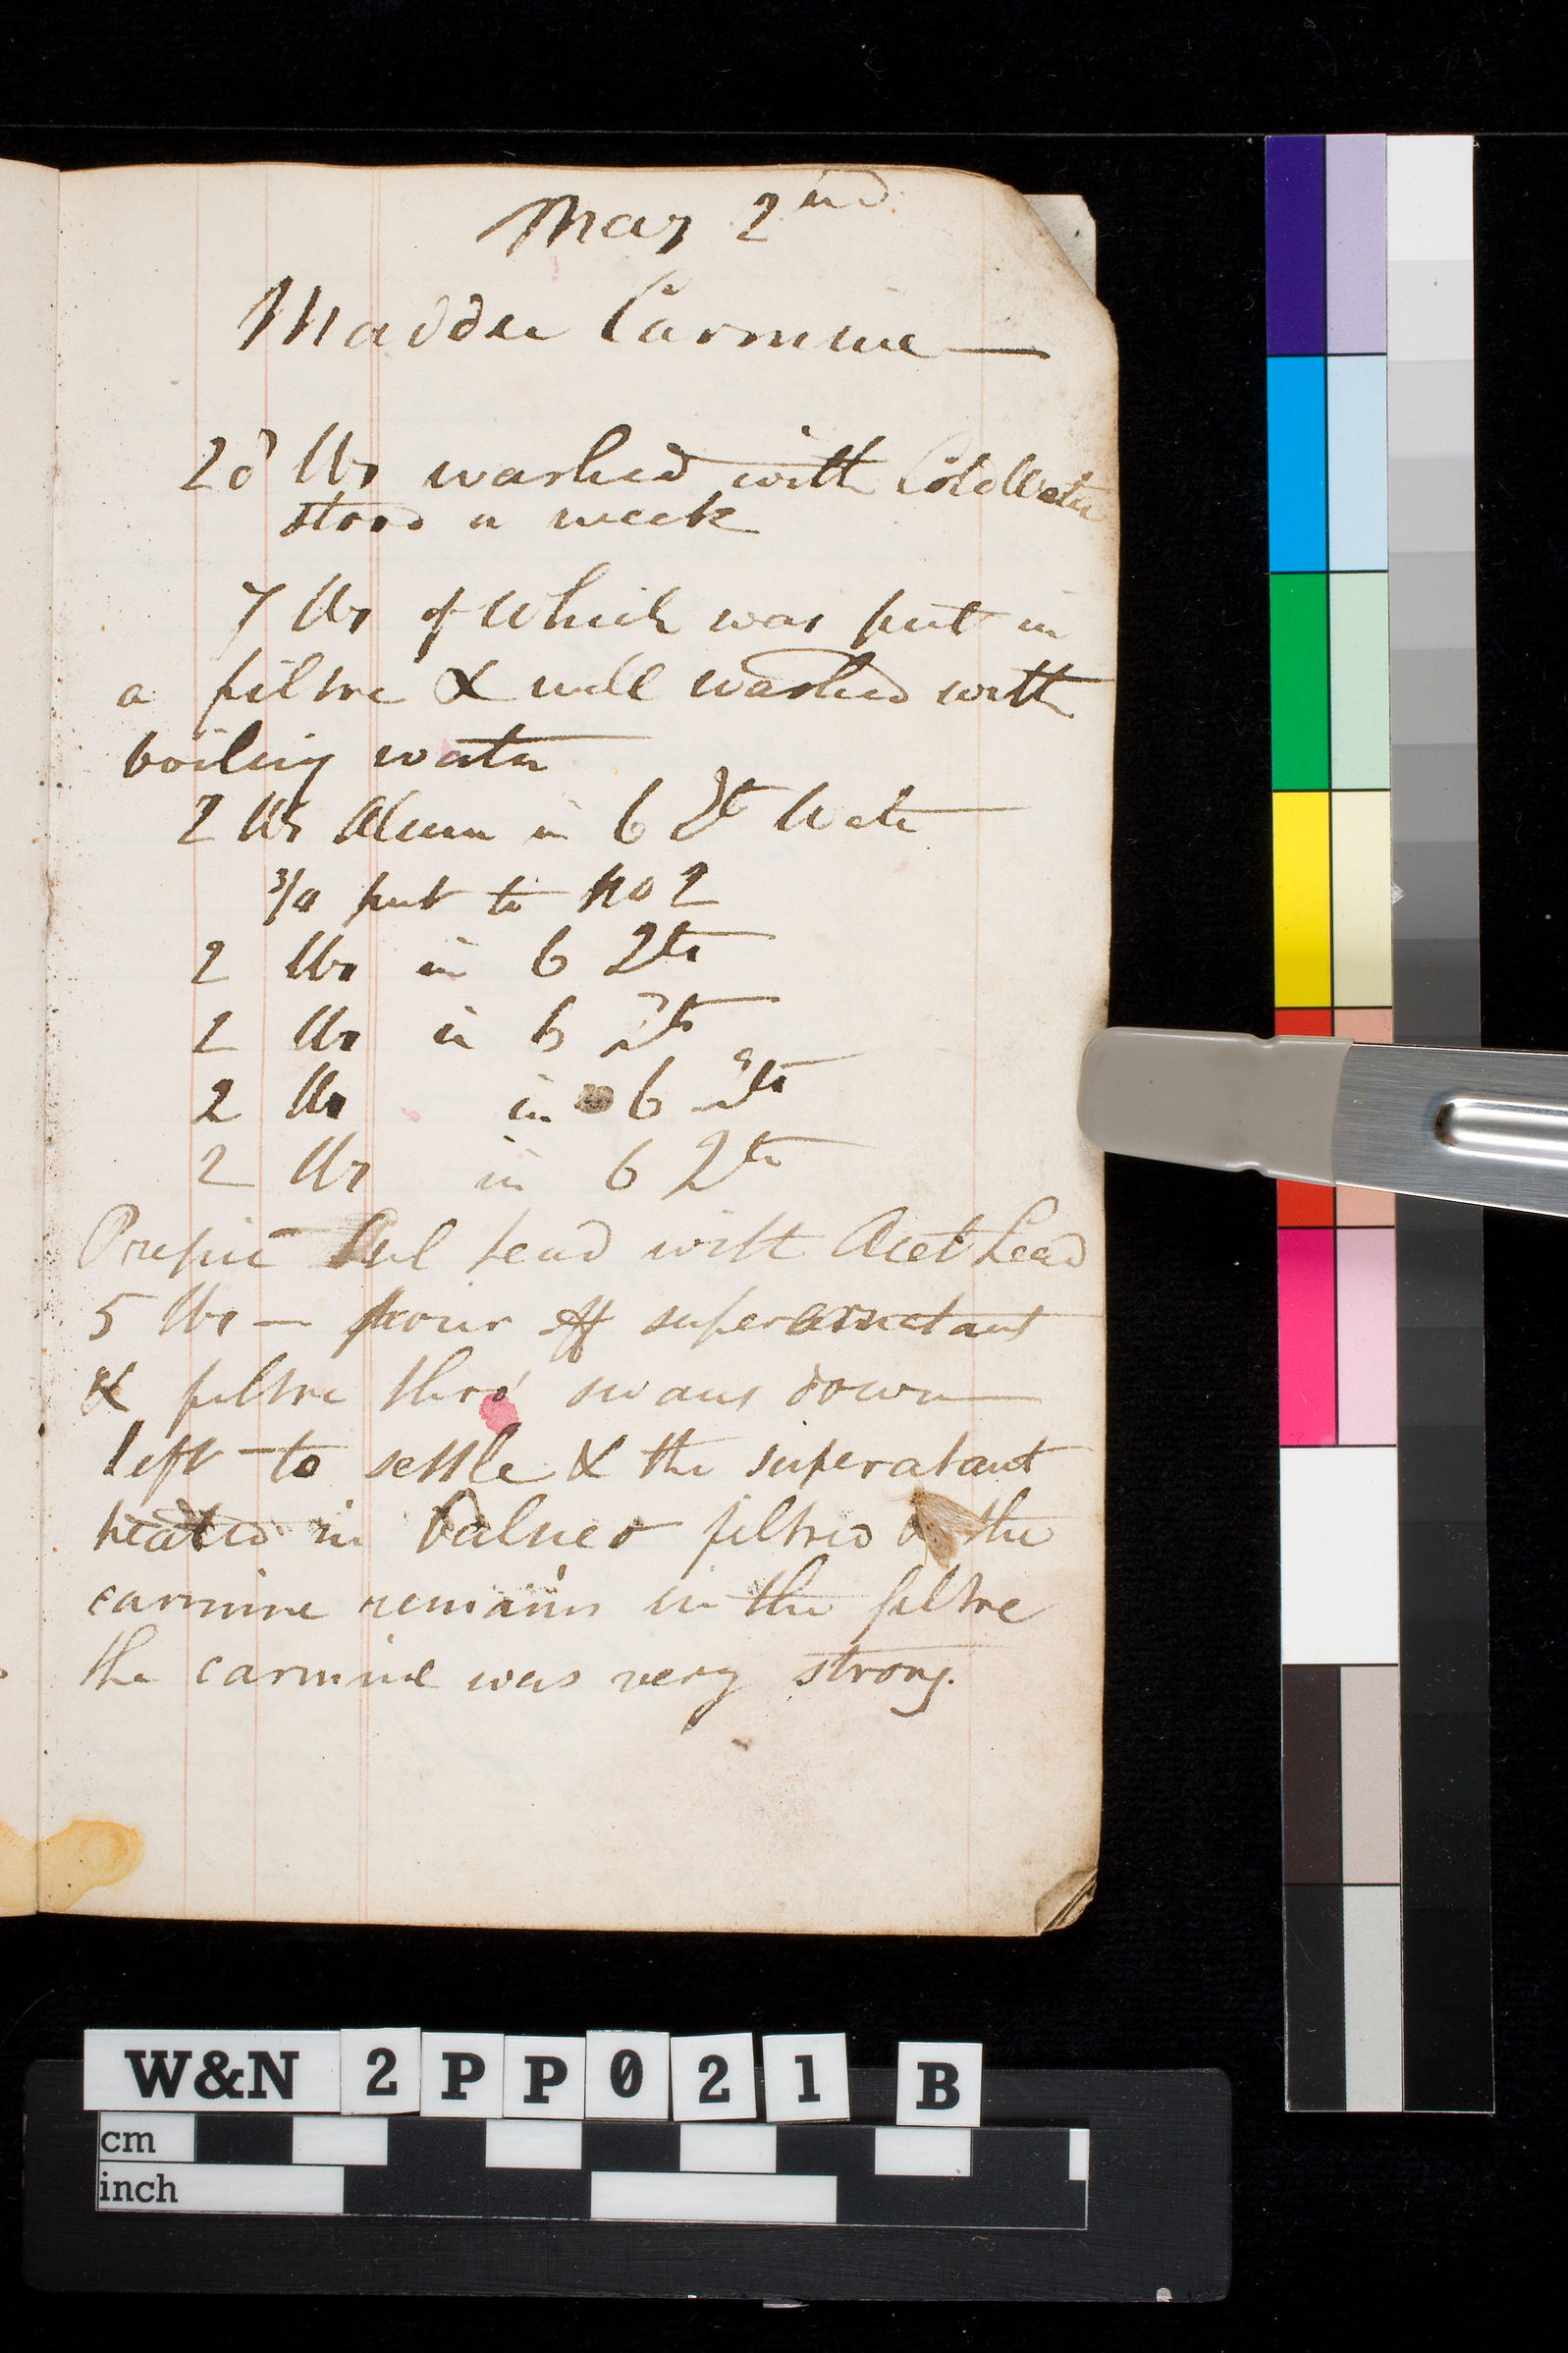 May 2nd
Madder Carmine
28 lbs washed with Cold Water
stood a week
7 lbs of which was put in
a filtre & well washed with
boiling water
2 lbs Alum in 6 Qts Water
3/4 put to No 2
2 lbs in 6 Qts
2 lbs in 6 Qts
2 lbs in 6 Qts
2 lbs in 6 Qts
Precipit Sul Lead with Acet Lead
5 lbs — pour off
& filtre thro' swans down
left to settle & the superatant
heated in balneo filtred & the
carmine remains in the filtre
the carmine was very strong.
W&N 2PP021 B
cm
inch